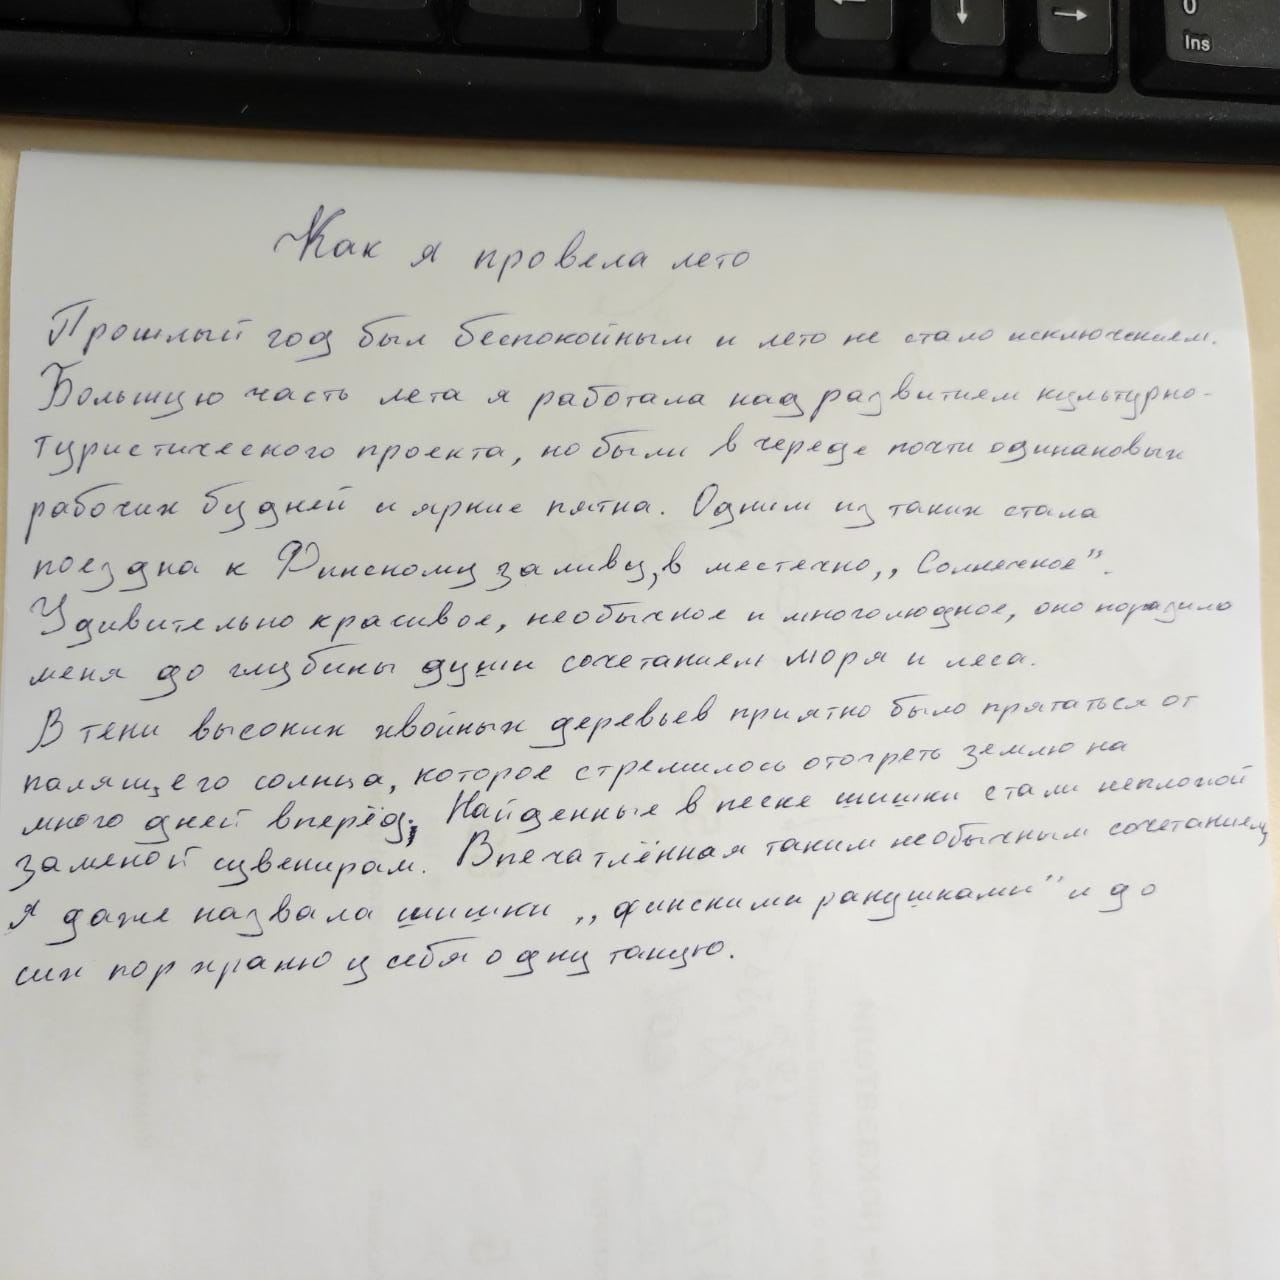 0
Ins
Как я провела лето
Прошлый год был беспокойным и лето не стало исключением.
Большую часть лета я работала над развитием культурно-
туристического проекта, но были в череде почти одинаковых
рабочих будней и яркие пятна. Одним из таких стала
поездка к Финскому заливу, в местечко „Солнечное”.
Удивительно красивое, необычное и многолюдное, оно поразило
меня до глубины души сочетанием моря и леса.
В тени высоких хвойных деревьев приятно было прятаться от
палящего солнца, которое стремилось отогреть землю на
много дней вперёд. Найденные в песке шишки стали неплохой
заменой сувенирам. Впечатлённая таким необычным сочетанием,
я даже назвала шишки „финскими ракушками” и до
сих пор храню у себя одну такую.